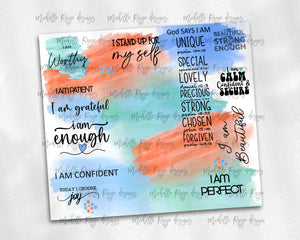 I AM
Worthy
I STAND UP FOR
my self
I AM PATIENT
I am grateful
i am
enough
I AM CONFIDENT
TODAY I CHOOSE
joy
God SAYS I AM
UNIQUE
SPECIAL
LOVELY
PRECIOUS
STRONG
CHOSEN
FORGIVEN
I AM
BEAUTIFUL
STRONG
ENOUGH
I AM
CALM
Confident &
SECURE
I am
Beautiful
I AM
PERFECT
Michelle Raye designs